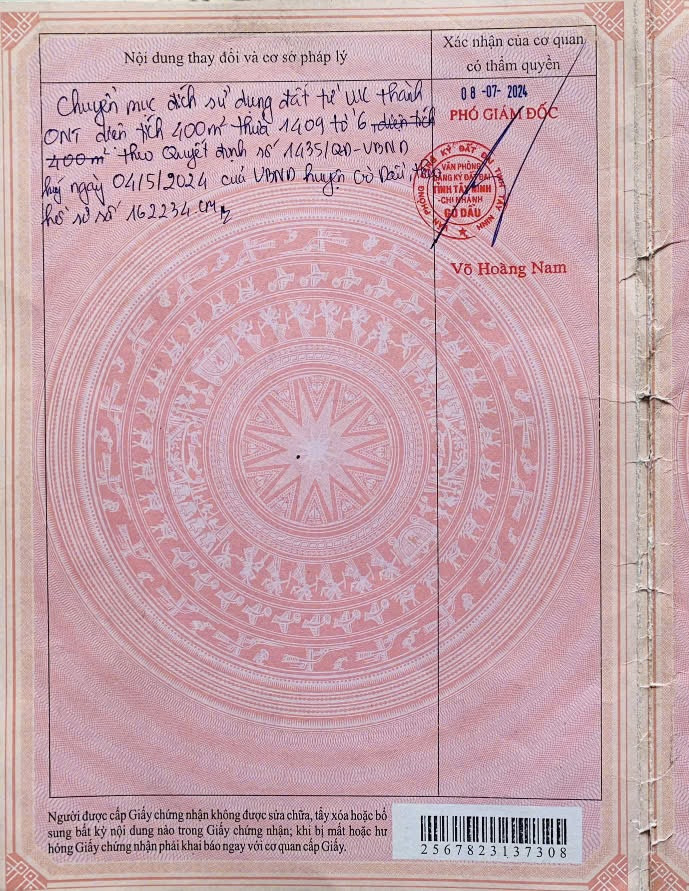 Nội dung thay đổi và cơ sở pháp lý
Xác nhận của cơ quan
có thẩm quyền
Chuyển mục đích sử dụng đất từ LUC thành
ONT diện tích 400m² thửa 1409 tờ 6, diện tích
400m² theo Quyết định số 1435/QĐ-UBND
ngày 04/5/2024 của UBND huyện Gò Dầu, theo
hồ sơ số 162234.CM
08-07-2024
PHÓ GIÁM ĐỐC
VĂN PHÒNG ĐĂNG KÝ ĐẤT ĐAI TỈNH TÂY NINH
VĂN PHÒNG
ĐĂNG KÝ ĐẤT ĐAI
TỈNH TÂY NINH
-CHI NHÁNH
GÒ DẦU
Võ Hoàng Nam
Người được cấp Giấy chứng nhận không được sửa chữa, tẩy xóa hoặc bổ
sung bất kỳ nội dung nào trong Giấy chứng nhận; khi bị mất hoặc hư
hỏng Giấy chứng nhận phải khai báo ngay với cơ quan cấp Giấy.
2567823137308